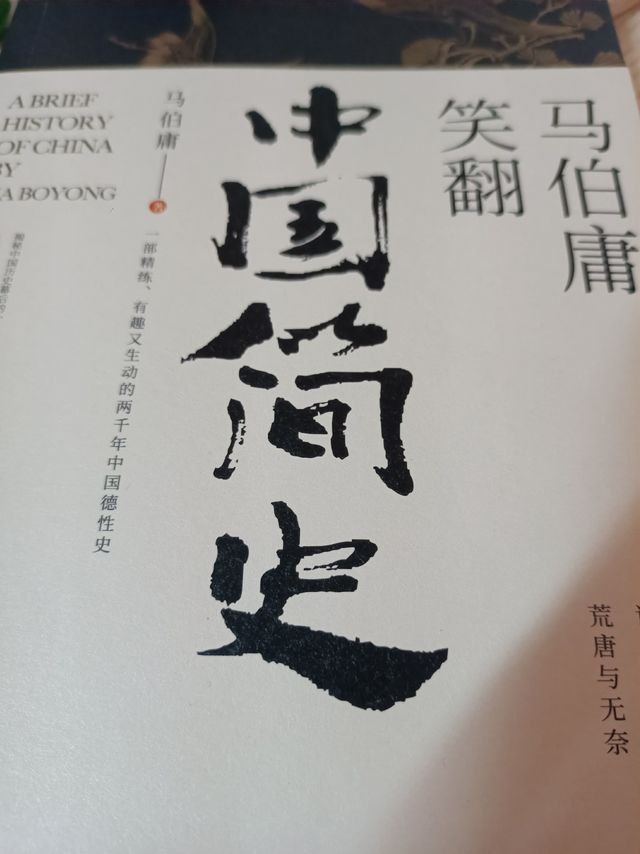 马伯庸
笑翻
中国简史
马伯庸 著
一部精练、有趣又生动的两千年中国德性史
A BRIEF
HISTORY
OF CHINA
BY
A BOYONG
荒唐与无奈